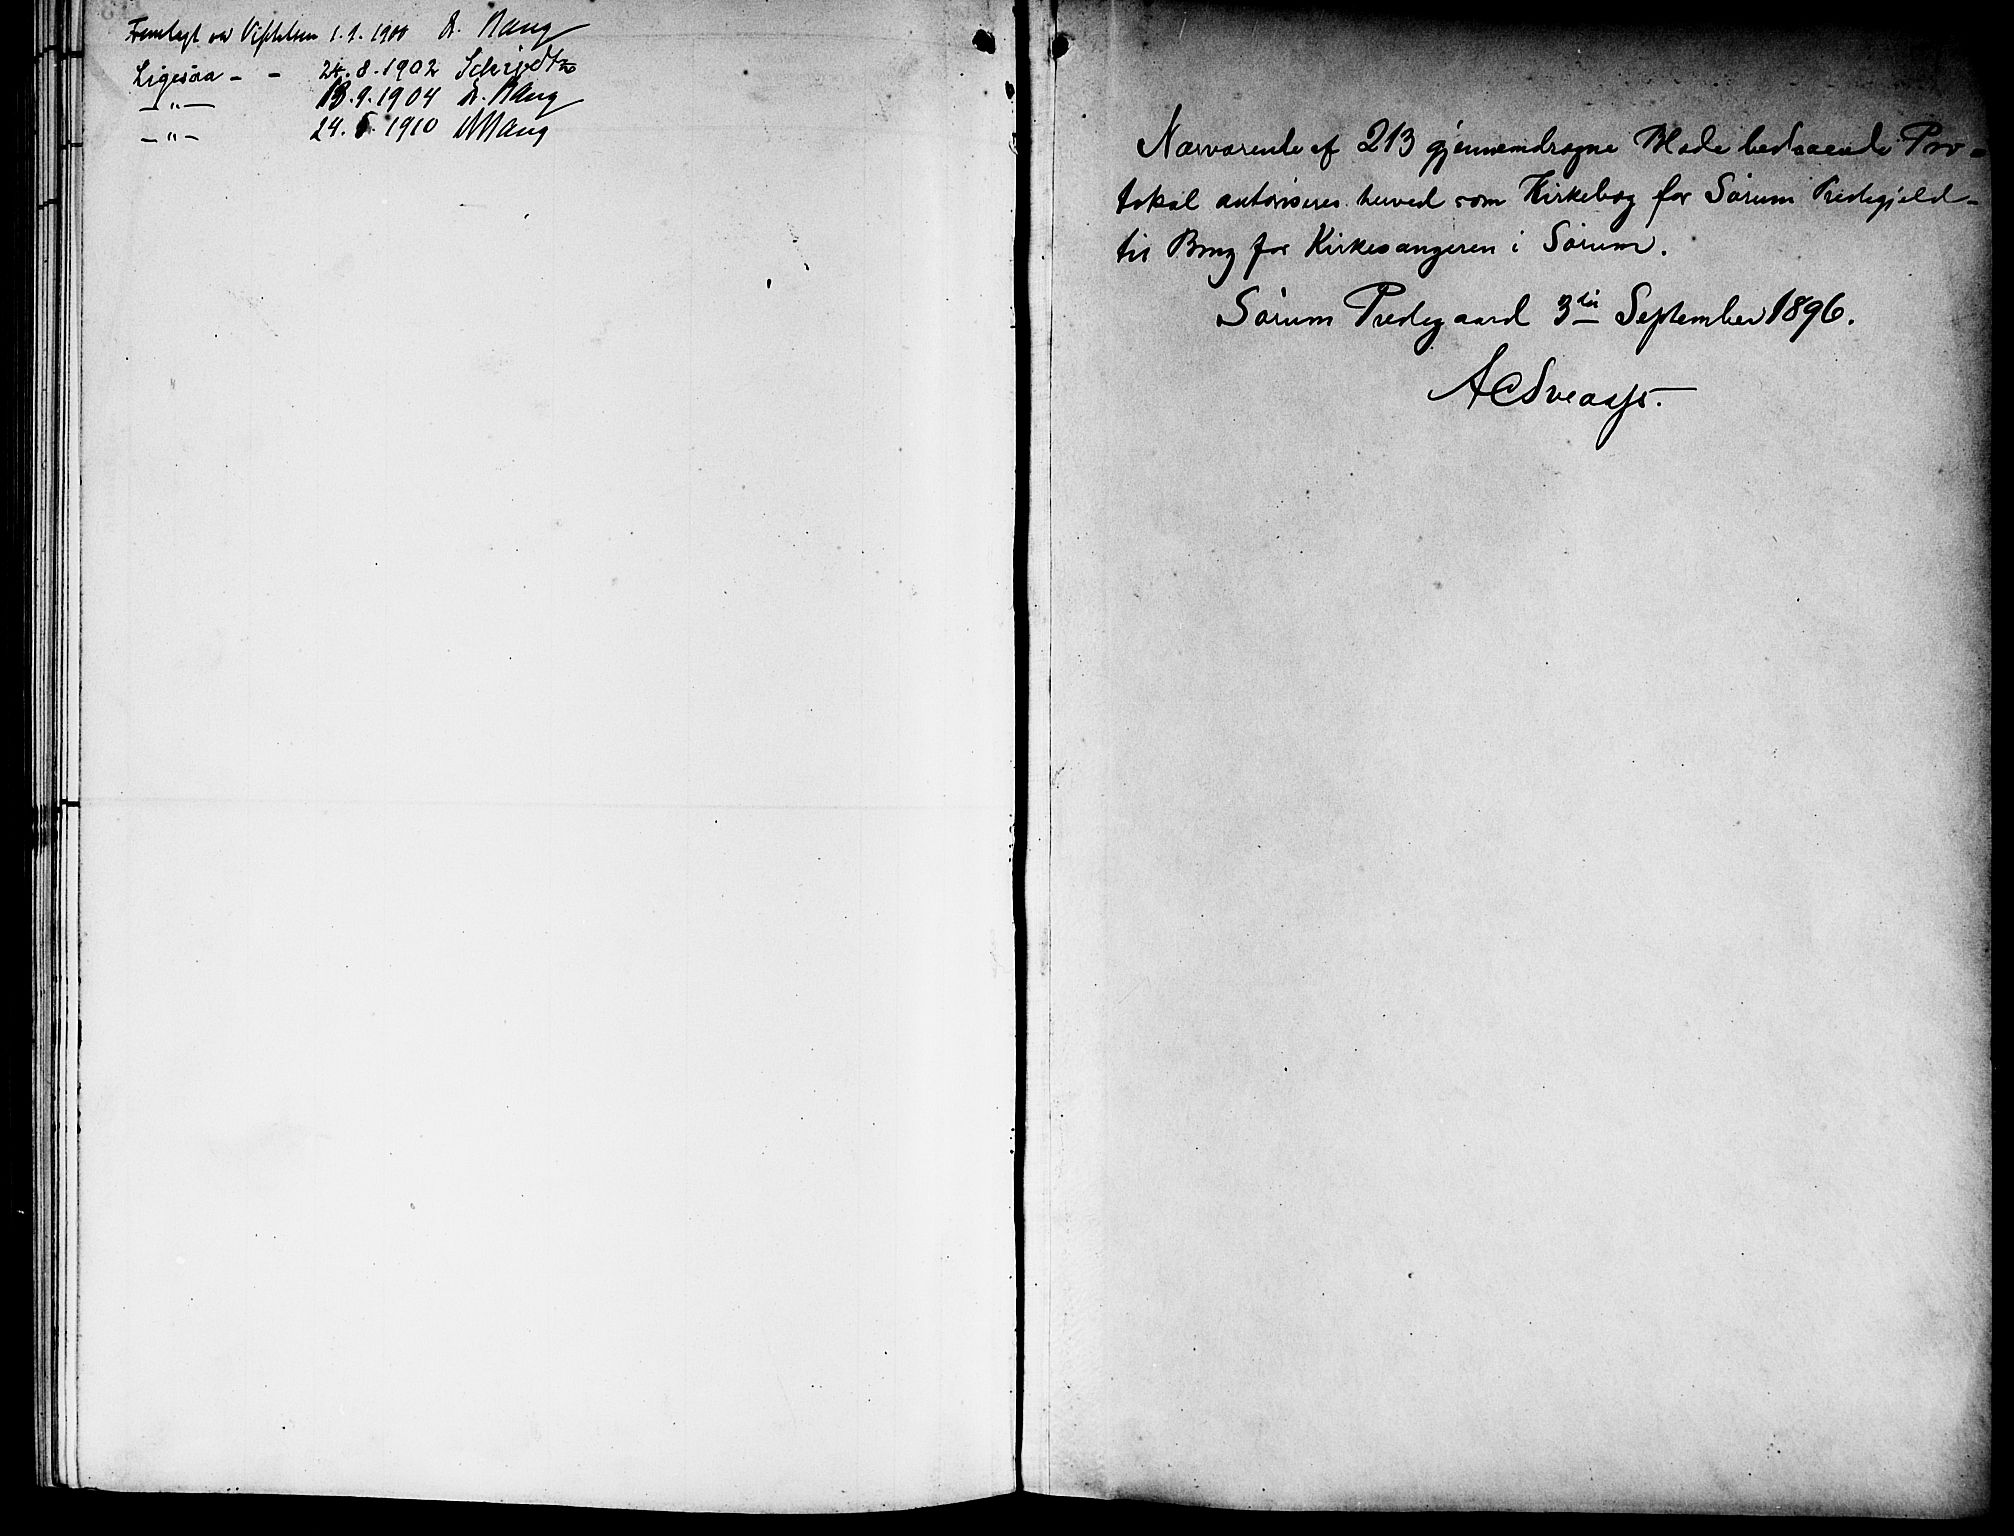 Fremlagt ved Visitatsen 1.9.1900 A. Bang
Ligesaa - - 24.8.1902 Schjødtz
— " — 18.9.1904 A. Bang
— " — 24.6.1910 A Bang
Nærværende af 213 gjennemdragne Blade bestaaende Pro-
tokol autoriseres herved som Kirkebog for Sørum Prestegjeld
til Brug for Kirkesangeren i Sørum.
Sørum Prestegaard 3die September 1896.
A C Sveaas.